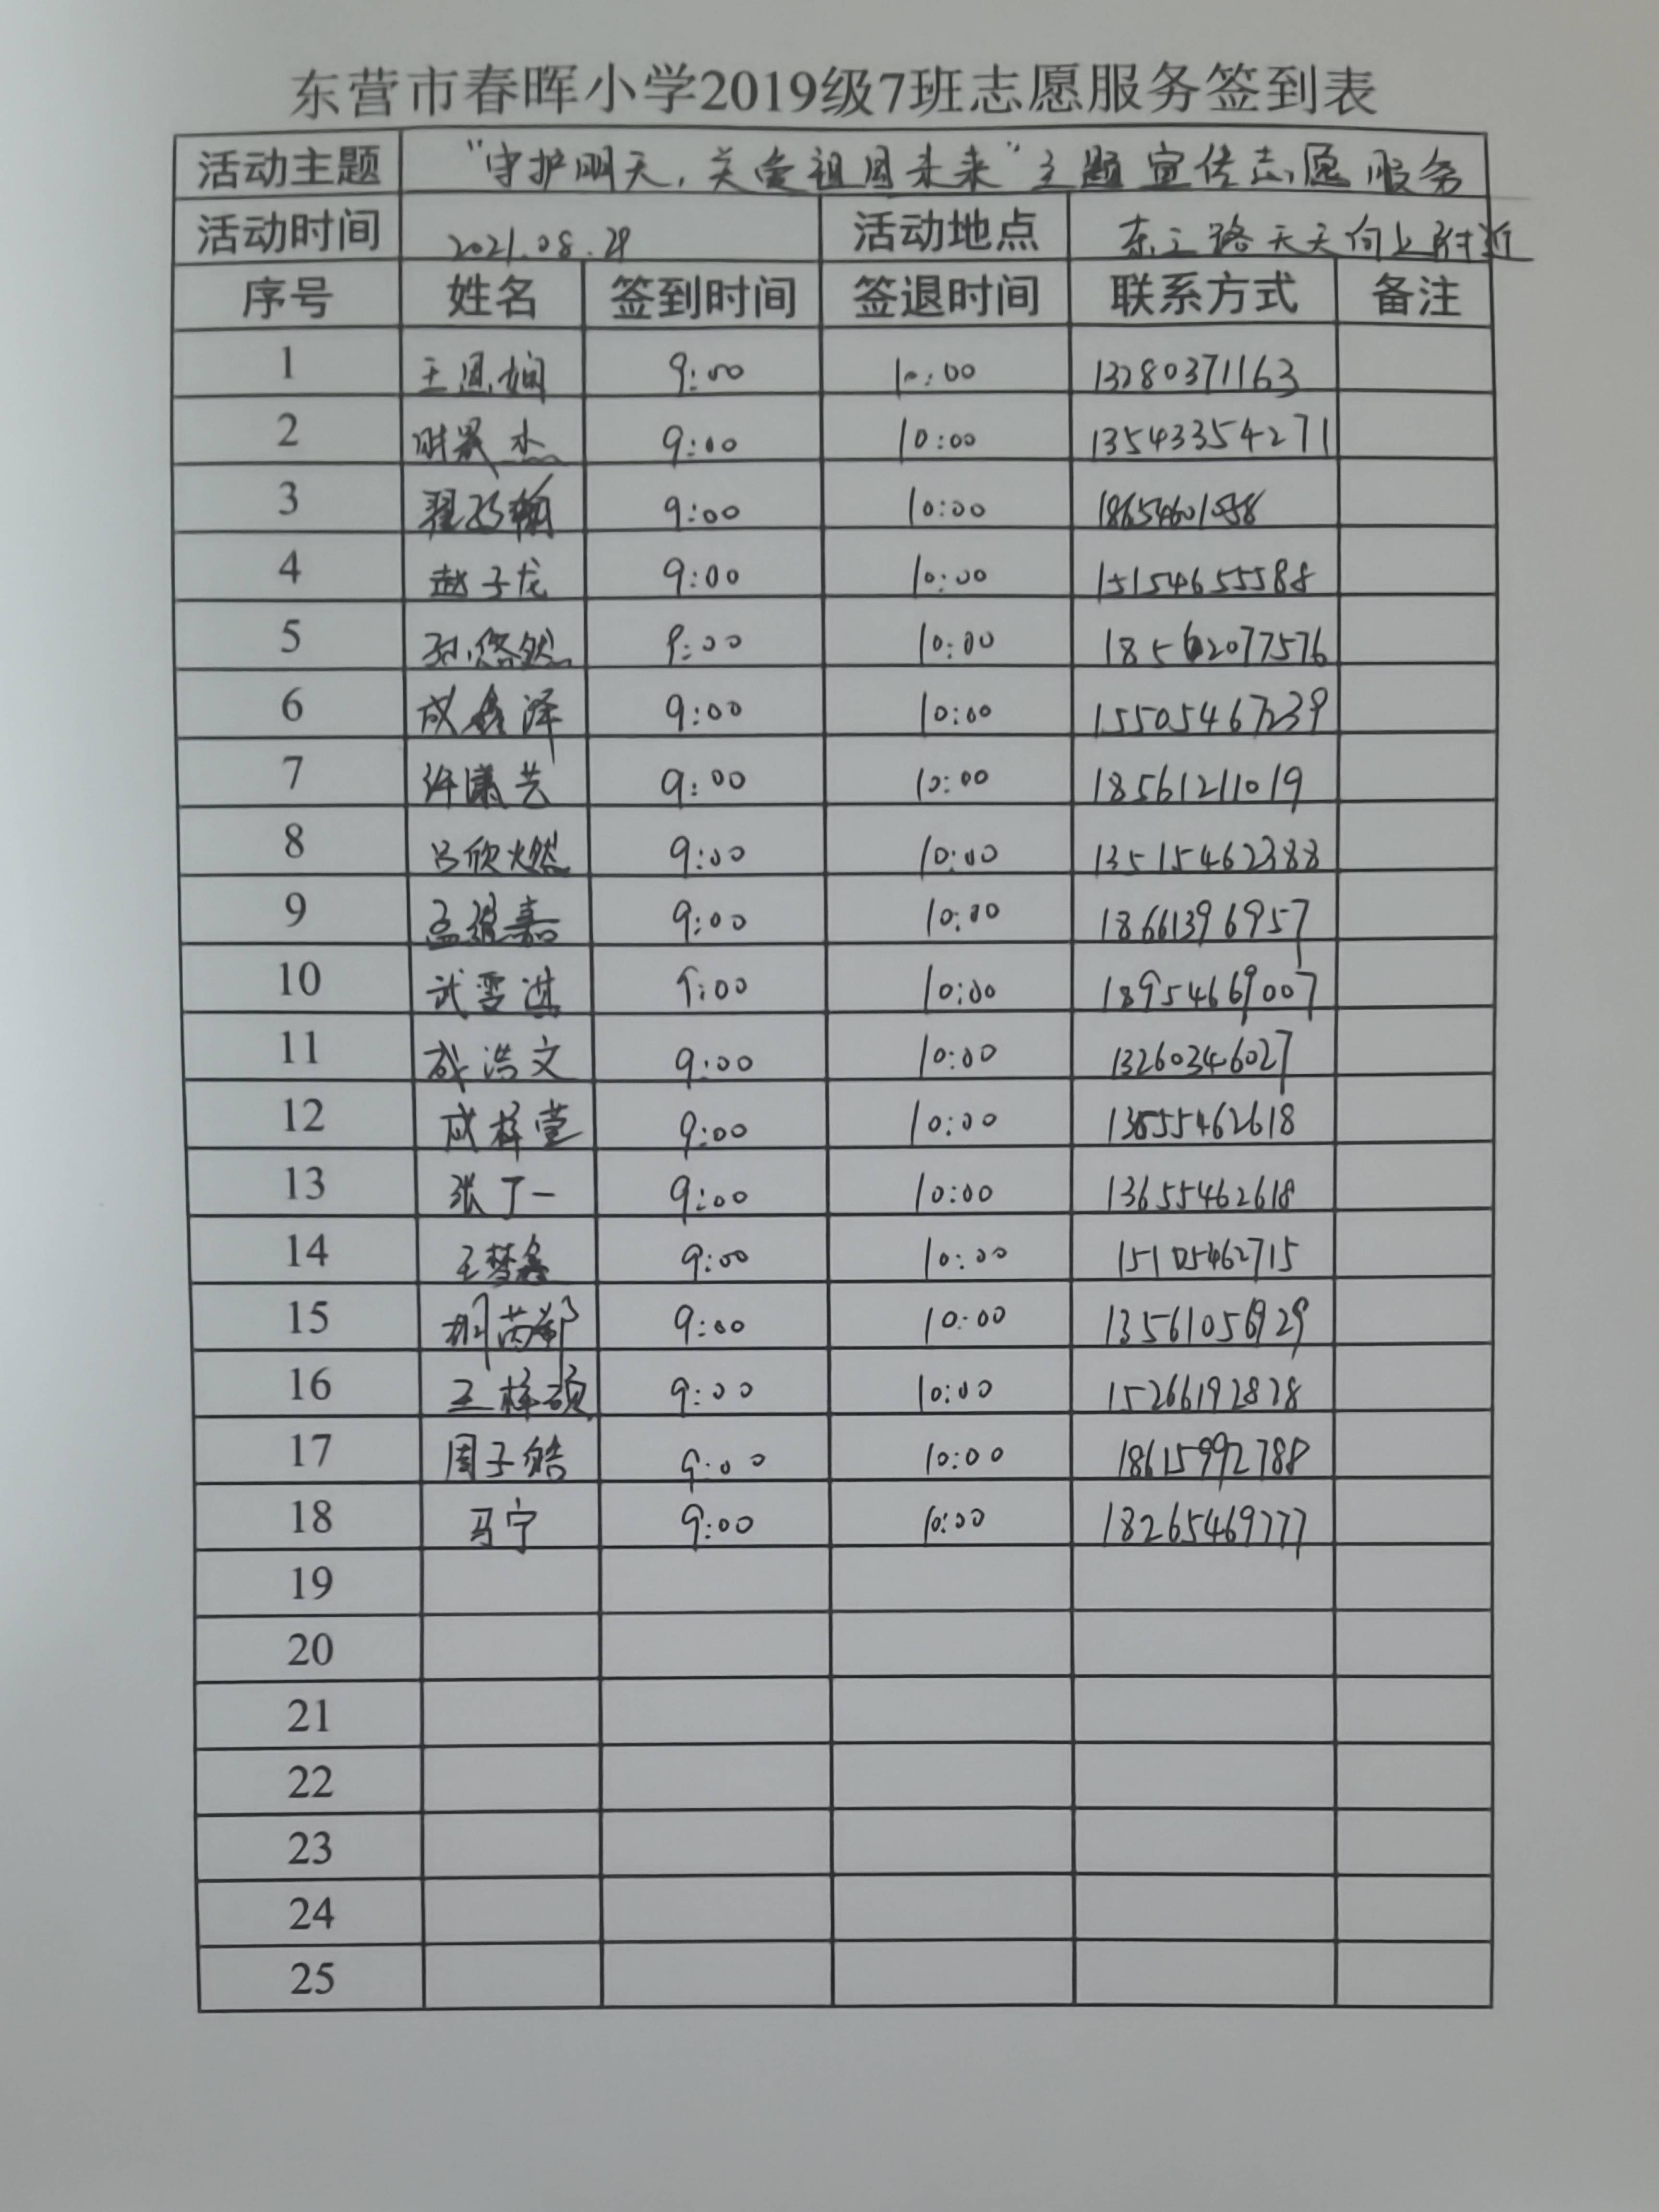 东营市春晖小学2019级7班志愿服务签到表
活动主题 “守护明天，关爱祖国未来”主题宣传志愿服务
活动时间 2021.08.29 活动地点 东三路天天向上附近
序号 姓名 签到时间 签退时间 联系方式 备注
1 王思娴 9:00 10:00 13280371163
2 9:00 10:00 13543354271
3 9:00 10:00
4 赵子龙 9:00 10:00 15154655588
5 孙悠然 9:00 10:00 18562077576
6 成鑫泽 9:00 10:00 15505467239
7 许潇艺 9:00 10:00 18561211019
8 吕欣燃 9:00 10:00 13515462388
9 孟 嘉 9:00 10:00 18661396957
10 武雯 9:00 10:00 18954669007
11 成浩文 9:00 10:00 13260346027
12 成梓萱 9:00 10:00 13655462618
13 张丁一 9:00 10:00 13655462618
14 王梦鑫 9:00 10:00 15105462715
15 9:00 10:00 13561056929
16 王梓硕 9:00 10:00 15266192828
17 周子皓 9:00 10:00 18615992788
18 马宁 9:00 10:00 18265469777
19
20
21
22
23
24
25